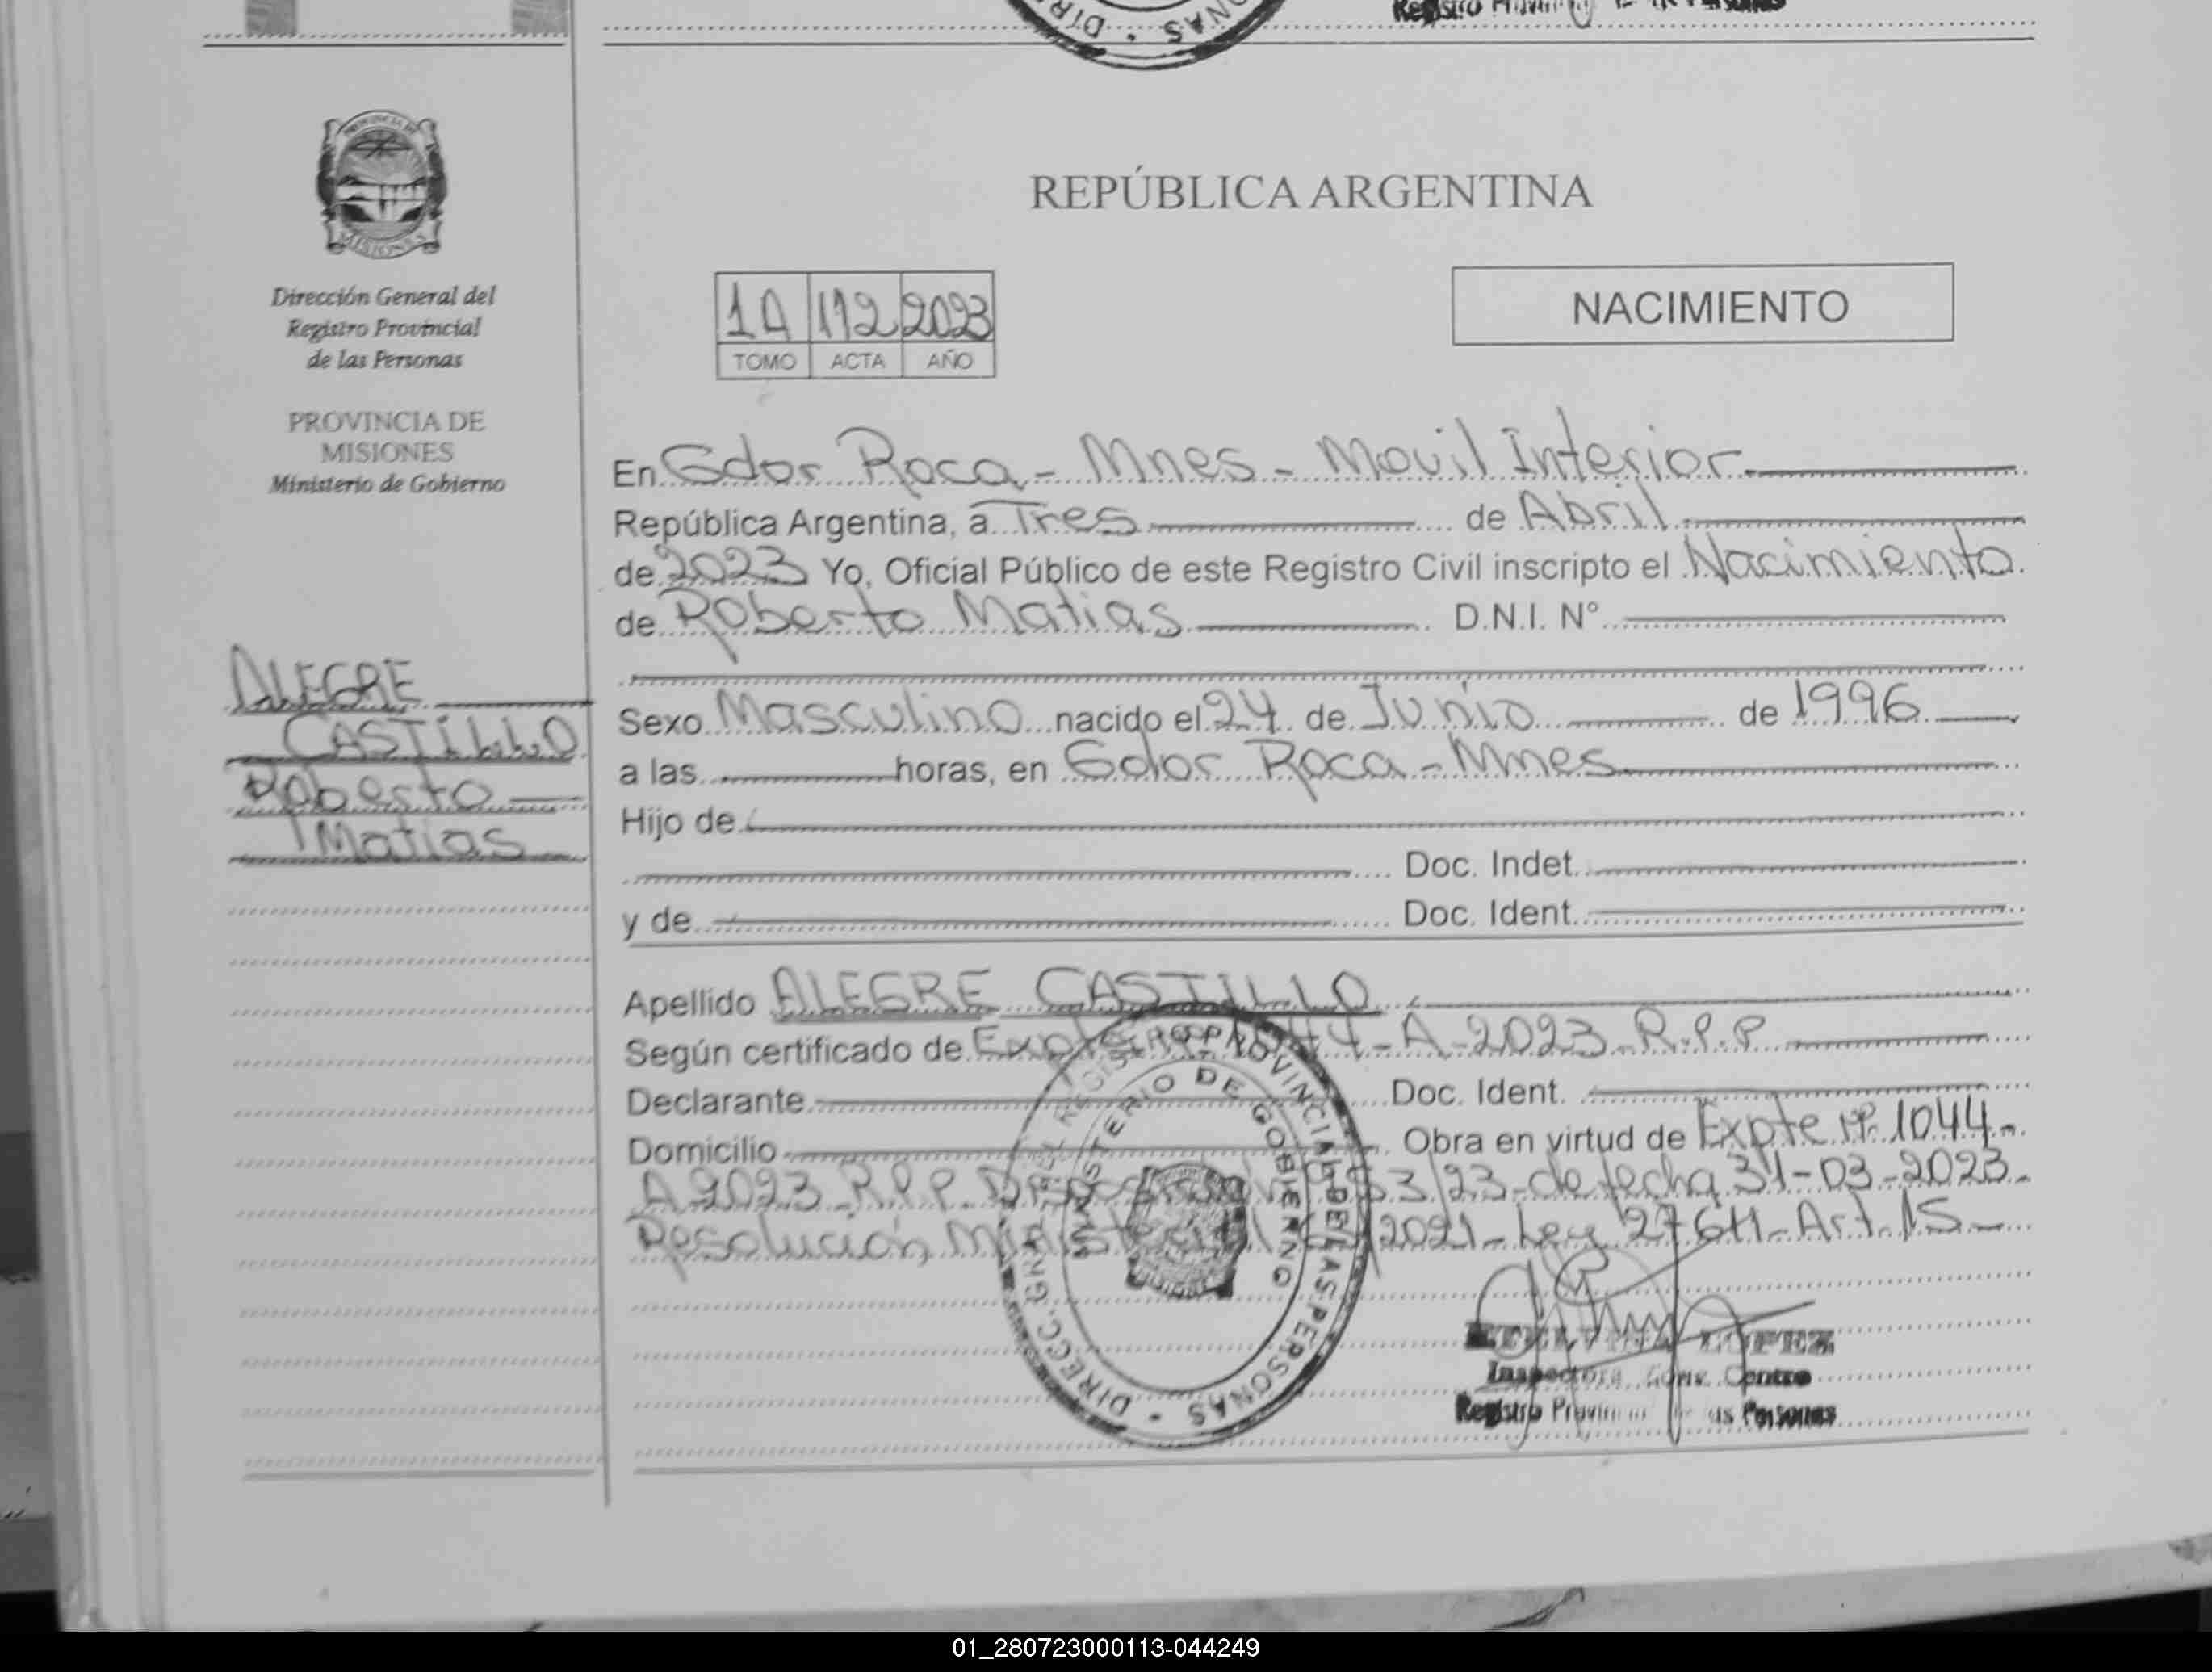 REPÚBLICA ARGENTINA
MISIONES
Dirección General del
Registro Provincial
de las Personas
PROVINCIA DE
MISIONES
Ministerio de Gobierno
ALEGRE
CASTILLO
Roberto
Matias
1A 112 2023
TOMO ACTA AÑO
NACIMIENTO
En Gdor Roca - Mnes - Movil Interior
República Argentina, a Tres de Abril
de 2023 Yo, Oficial Público de este Registro Civil inscripto el Nacimiento
de Roberto Matias D.N.I. N°
Sexo Masculino nacido el 24 de Junio de 1996
a las horas, en Gdor Roca - Mnes
Hijo de
Doc. Indet.
y de Doc. Ident.
Apellido ALEGRE CASTILLO
Según certificado de Expte 1044-A-2023-R.P.P
Declarante Doc. Ident.
Domicilio Obra en virtud de Expte nº 1044-
A 2023-R.P.P. /23-de fecha 31-03-2023-
Resolución Ministerial /2021-Ley 27611-Art. 15
DIRECC. GENERAL DEL REGISTRO PROVINCIAL DE LAS PERSONAS
MINISTERIO DE GOBIERNO
LOPEZ
Inspectora Centro
Registro Provincial de las Personas
01_280723000113-044249